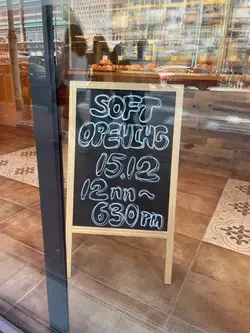 SOFT
OPENING
15.12
12nn~
630pm